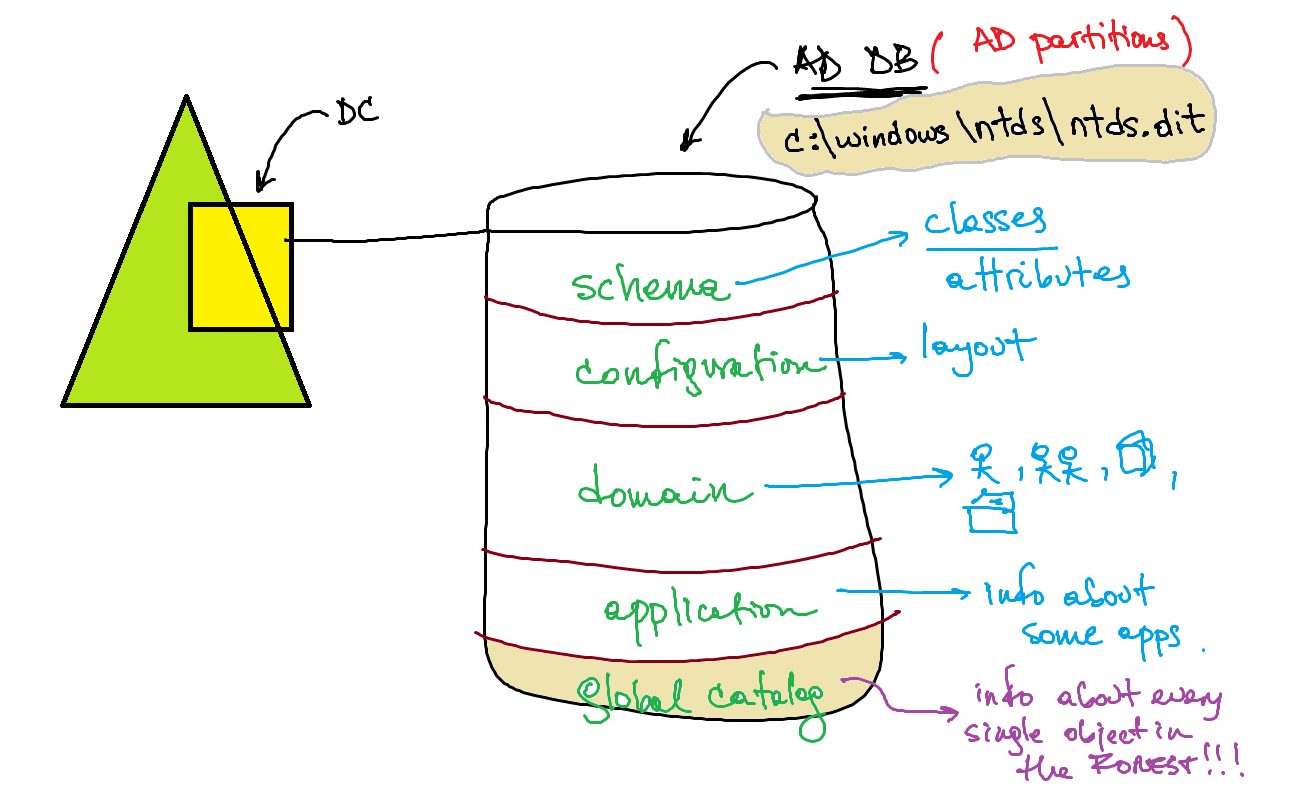 AD DB ( AD partitions )
c:\windows\ntds\ntds.dit
DC
schema
classes
attributes
configuration
layout
domain
, , ,
application
info about
some apps.
global catalog
info about every
single object in
the FOREST!!!